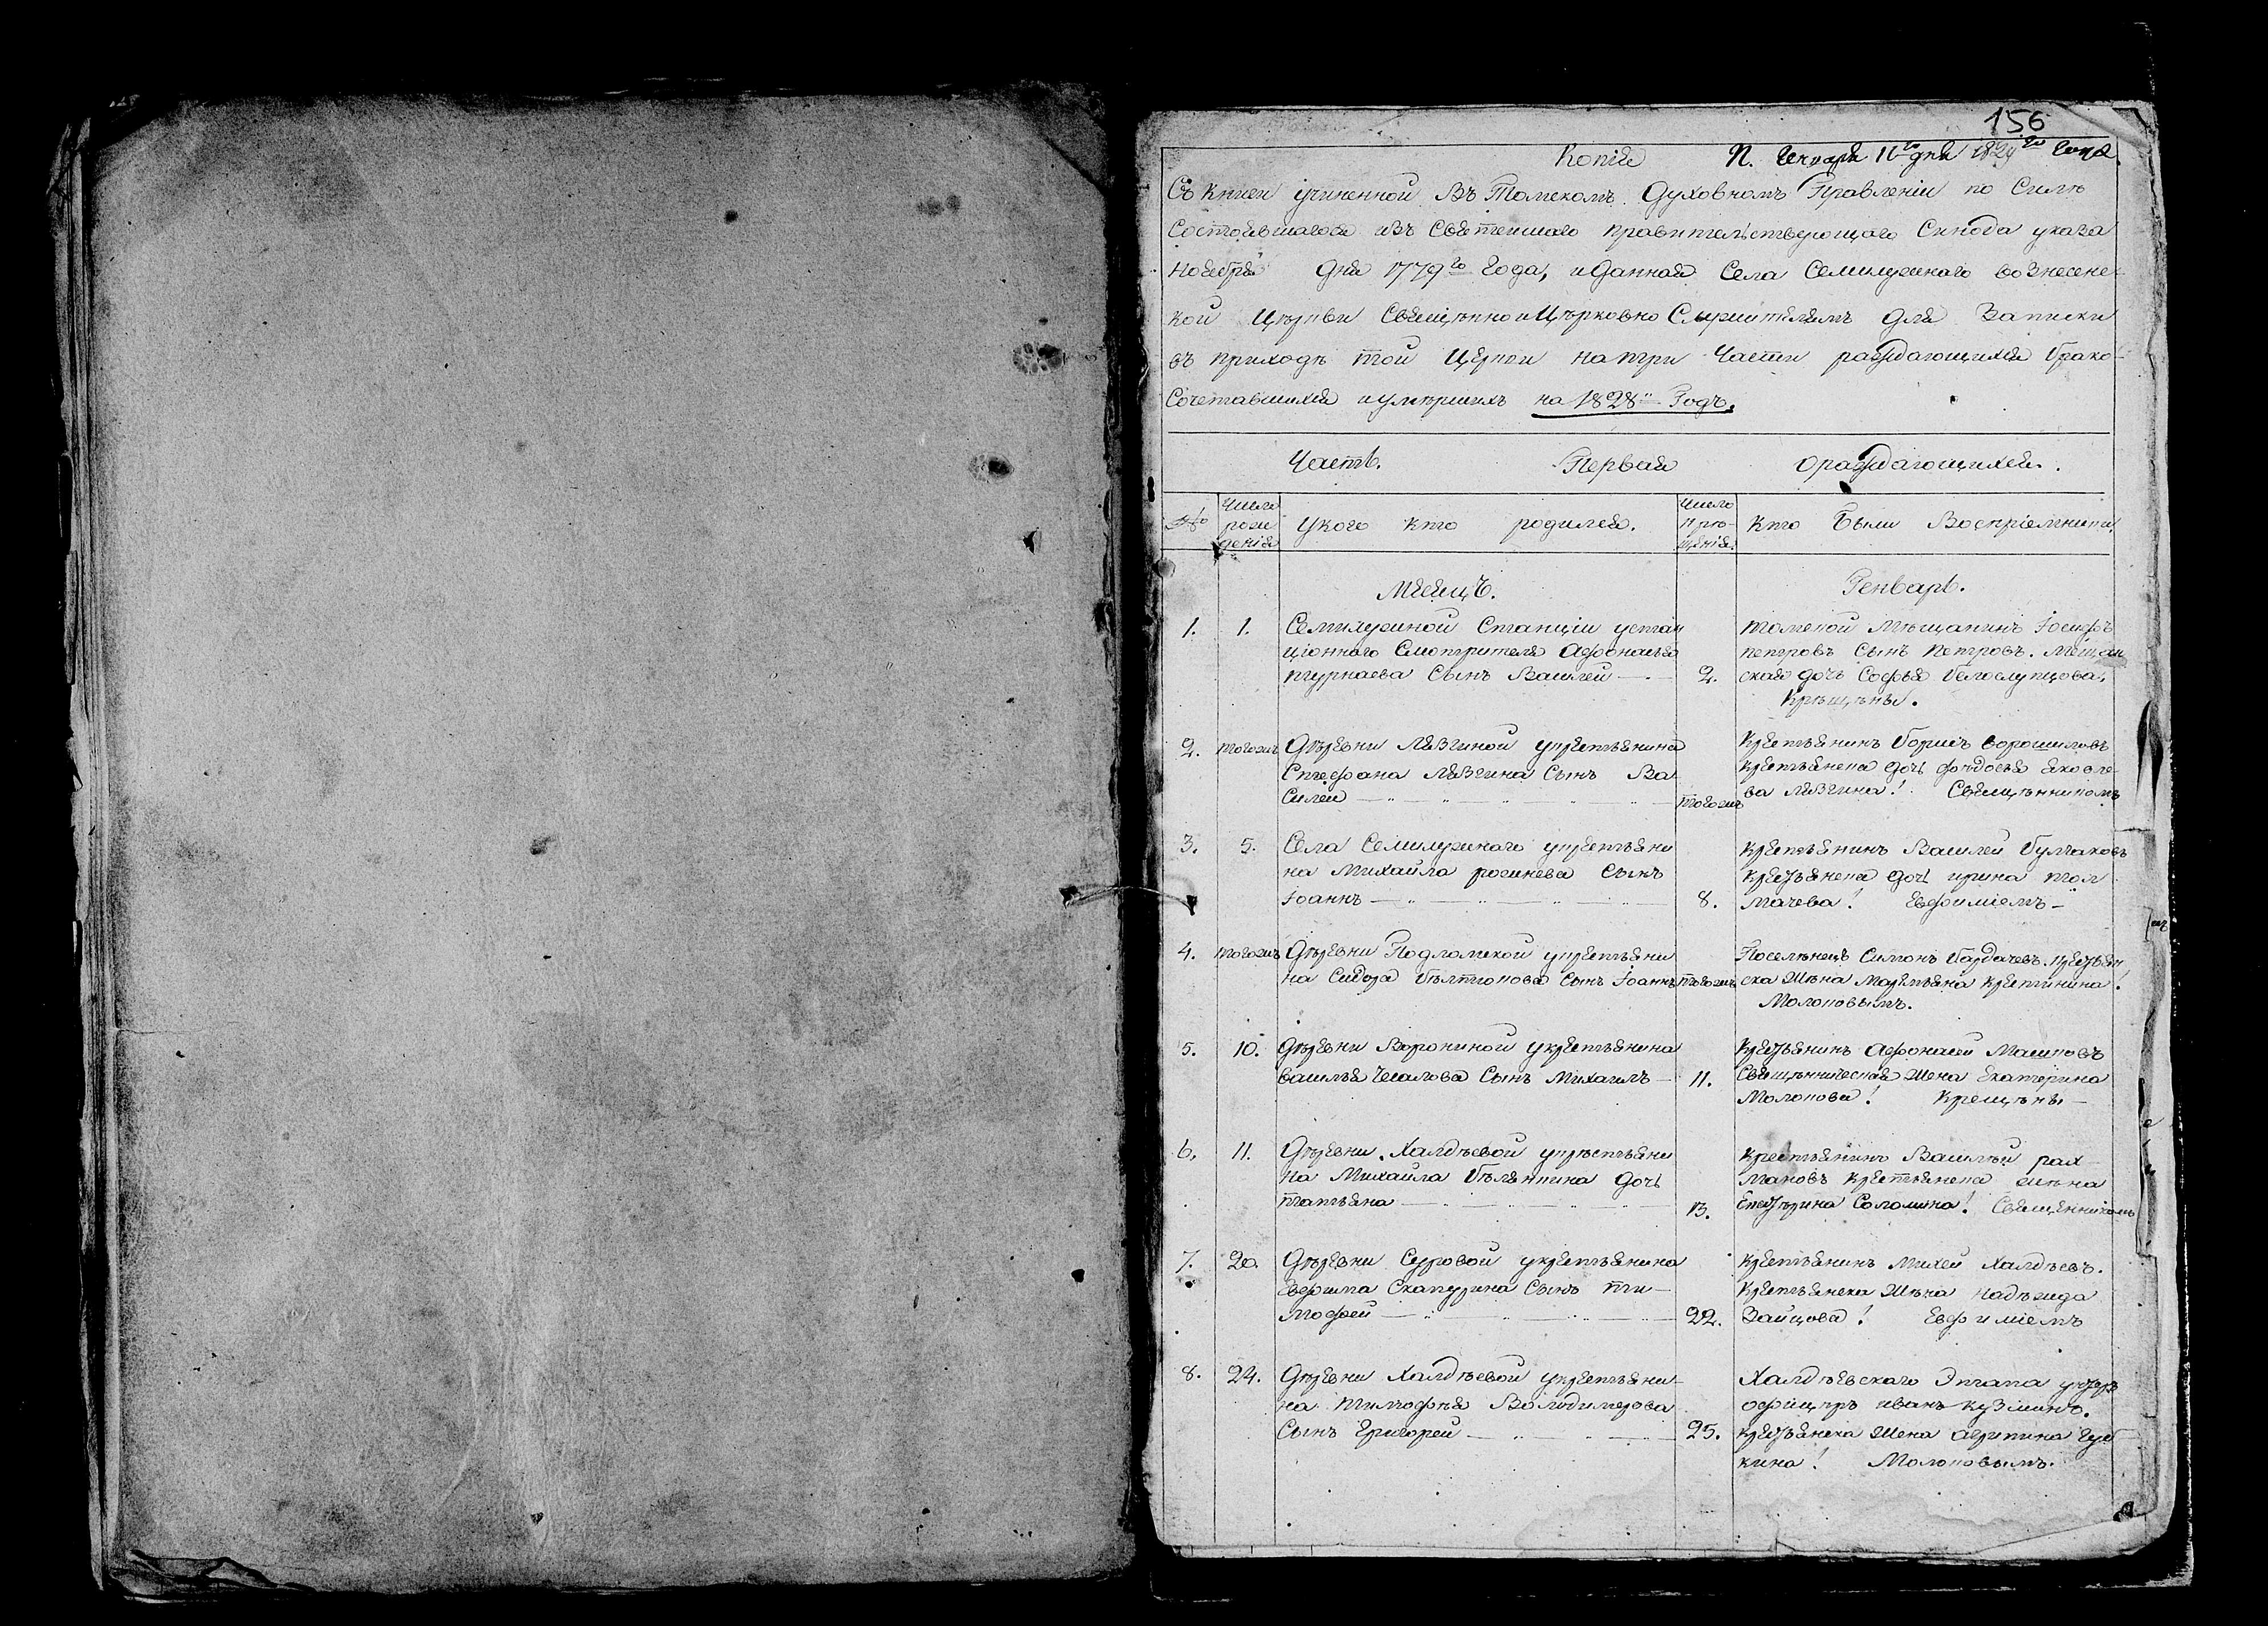 156
Копія П. Генваря 16го дня 1829го года.
Съ книги учиненной въ Томскомъ Духовномъ Правленіи по силѣ
состоявшагося изъ Святейшаго правительствующаго Синода указа
ноября дня 1779го Года, и данная Села Семилужнаго вознесенс-
кой Церкви Священно и Церковно Служителямъ для Записки
въ приходѣ той Церкви на три Части раждающихся брако-
Сочетавшихся и умершихъ на 1828й Годъ.
Часть. Первая о раждающихся.
№ Число рожденія У кого кто родился. Число крещенія Кто были Воспріемники.
Мѣсяцъ. Генварь.
1. 1. Семилужной Станціи у стан
ціоннаго Смотрителя Афонасья
Сынъ Василей 2.
томской Мѣщанинъ Іосифъ
петровъ Сынъ Петровъ. Мещан
ская дочь Софья Белослупцова,
Крещены.
2. тогожъ Деревни Лязгиной у крестьянина
Стефана Лязгина Сынъ Ва
Силей тогожъ
Крестьянинъ Борисъ Ворошиловъ
крестьянска дочь Федосья Яковле-
ва Лязгина! Священникомъ
3. 5. Села Семилужнаго у крестьяни
на Михайла Сынъ
Іоаннъ 8.
Крестьянинъ Василей Булгаковъ
крестьянска дочь ирина тол
мачева! Евфиміемъ
4. тогожъ Деревни Подломской у крестьяни
на Сидора Сынъ Іоаннъ тогожъ
Поселенецъ Симонъ Бардачевъ. крестьян
ска Жена Маремьяна
Молоковымъ.
5. 10. Деревни Ворониной у крестьянина
василья Чекалова Сынъ Михаилъ 11.
Крестьянинъ Афонасей Машковъ
Священническая Жена Екатерина
Молокова! Крещены
6. 11. Деревни Халдѣевой у крестьяни
на Михайла Белянкина дочь
татьяна 13.
крестьянинъ Василѣй рах
мановъ крестьянска жена
Екатерина Соломина! Священникомъ
7. 20. Деревни Суровой у крестьянина
Евфима Скатурина Сынъ ти
мофей 22.
крестьянинъ Михей Халдѣевъ.
крестьянска Жена надежда
Зайцова! Евфиміемъ
8. 24. Деревни Халдѣевой у крестьяни-
на тимофѣя Володимерова
Сынъ Григорей 25.
Халдѣевскаго Этапа унтеръ
офицеръ иванъ кузминъ.
крестьянска Жена Агрипина Губ
кина! Молоковымъ.